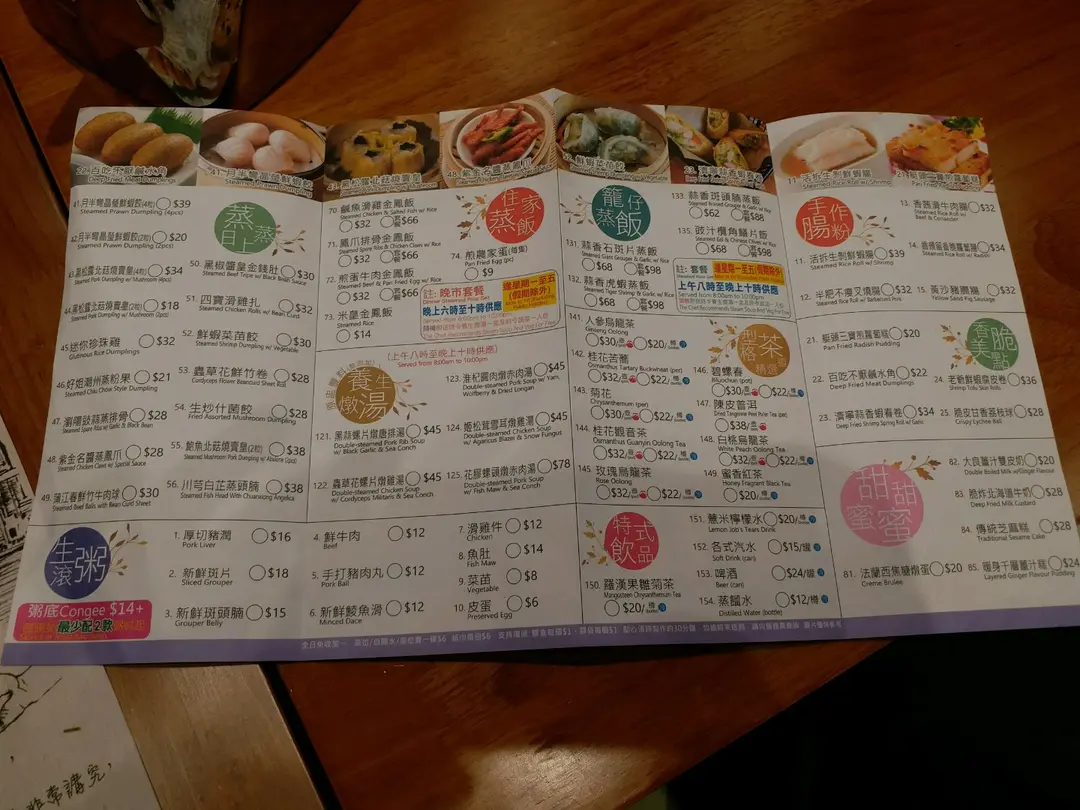 百吃不厭鹹水角
Deep Fried Meat Dumplings
鮮蝦菜苗餃
蒸蒸日上
41.月半彎晶瑩鮮蝦餃(4粒) $39
Steamed Prawn Dumpling (4pcs)
42.月半彎晶瑩鮮蝦餃(2粒) $20
Steamed Prawn Dumpling (2pcs)
43.黑松露北菇燒賣皇(4粒) $34
Steamed Pork Dumpling w/ Mushroom (4pcs)
44.黑松露北菇燒賣皇(2粒) $18
Steamed Pork Dumpling w/ Mushroom (2pcs)
45.迷你珍珠雞 $32
Glutinous Rice Dumplings
46.好姐潮州蒸粉果 $21
Steamed Chiu Chow Style Dumpling
47. 瀏陽豉蒜蒸排骨 $28
Steamed Spare Ribs w/ Garlic & Black Bean
48. 紫金名醬蒸鳳爪 $28
Steamed Chicken Claws w/ Special Sauce
49. 蒲江春鮮竹牛肉球 $30
Steamed Beef Balls with Bean Curd Sheet
50. 黑椒醬皇金錢肚 $30
Steamed Beef Tripe w/ Black Bean Sauce
51. 四寶滑雞扎 $32
Steamed Chicken Rolls w/ Bean Curd
52. 鮮蝦菜苗餃 $30
Steamed Shrimp Dumpling w/ Vegetable
53. 蟲草花鮮竹卷 $28
Cordyceps Flower Beancurd Sheet Roll
54. 生炒什菌餃 $28
Fried Assorted Mushroom Dumpling
55. 鮑魚北菇燒賣皇(2粒) $38
Steamed Mushroom Pork Dumpling w/ Abalone (2pcs)
56. 川芎白芷蒸頭腩 $38
Steamed Fish Head With Chuanxiong Angelica
住家蒸飯
70. 鹹魚滑雞金鳳飯
Steamed Chicken & Salted Fish w/ Rice
$32 套餐$66
71. 鳳爪排骨金鳳飯
Steamed Spare Ribs & Chicken Claws w/ Rice
$32 套餐$66
72. 煎蛋牛肉金鳳飯
Steamed Beef & Pan Fried Egg w/ Rice
$32 套餐$66
73. 米皇金鳳飯
Steamed Rice
$14
74. 煎農家蛋(每隻)
Pan Fried Egg (pc)
$9
註: 晚市套餐
逢星期一至五
(假期除外)
晚上六時至十時供應
養生燉湯
(上午八時至晚上十時供應)
Served from 8:00am to 10:00pm
121. 黑蒜螺片燉唐排湯 $45
Double-steamed Pork Rib Soup
w/ Black Garlic & Sea Conch
122. 蟲草花螺片燉雞湯 $45
Double-steamed Chicken Soup
w/ Cordyceps Militaris & Sea Conch
123. 淮杞圓肉燉赤肉湯 $45
Double-steamed Pork Soup w/ Yam,
Wolfberry & Dried Longan
124. 姬松茸雪耳燉雞湯 $45
Double-steamed Chicken Soup
w/ Agaricus Blazei & Snow Fungus
125. 花膠螺頭燉赤肉湯 $78
Double-steamed Pork Soup
w/ Fish Maw & Sea Conch
籠仔蒸飯
131. 蒜香石斑片蒸飯
Steamed Giant Grouper & Garlic w/ Rice
$68 套餐$98
132. 蒜香虎蝦蒸飯
Steamed Tiger Shrimp & Garlic w/ Rice
$68 套餐$98
133. 蒜香斑頭腩蒸飯
Steamed Braised Grouper & Garlic w/ Rice
$62 套餐$88
135. 豉汁欖角鱔片飯
Steamed Eel & Chinese Olives w/ Rice
$68 套餐$98
註: 套餐 逢星期一至五(假期除外)
上午八時至晚上十時供應
Served from 8:00am to 10:00pm
型格茶精選
141. 人參烏龍茶
Ginseng Oolong
$30 $22
142. 桂花苦蕎
Osmanthus Tartary Buckwheat (per)
$32 $22
143. 菊花
Chrysanthemum (per)
$30 $22
144. 桂花觀音茶
Osmanthus Guanyin Oolong Tea
$32 $22
145. 玫瑰烏龍茶
Rose Oolong
$32 $22
146. 碧螺春
Biluochun (pot)
$30 $22
147. 陳皮普洱
Dried Tangerine Peel Pu'er Tea (per)
$38
148. 白桃烏龍茶
White Peach Oolong Tea
$32 $22
149. 蜜香紅茶
Honey Fragrant Black Tea
$20
特式飲品
150. 羅漢果雛菊茶
Mangosteen Chrysanthemum Tea
$20
151. 薏米檸檬水 $20
Lemon Job's Tears Drink
152. 各式汽水 $15
Soft Drink (can)
153. 啤酒 $24
Beer (can)
154. 蒸餾水 $12
Distilled Water (bottle)
手作腸粉
11. 活拆生剝鮮蝦腸 $39
Steamed Rice Roll w/ Shrimp
12. 半肥不瘦叉燒腸 $32
Steamed Rice Roll w/ Barbecued Pork
13. 香茜滑牛肉腸 $32
Steamed Rice Roll w/ Beef & Coriander
14. $34
15. 黃沙豬膶腸 $32
香脆美點
21. 龍頭三寶煎蘿蔔糕 $20
Pan Fried Radish Pudding
22. 百吃不厭鹹水角 $22
Deep Fried Meat Dumplings
23. 濟寧蒜香蝦春卷 $34
Deep Fried Shrimp Spring Roll w/ Garlic
24. 老爺鮮蝦腐皮卷 $36
Shrimp Tofu Skin Rolls
25. 脆皮甘香荔枝球 $28
Crispy Lychee Ball
甜甜蜜蜜
81. 法蘭西焦糖燉蛋 $20
Creme Brulee
82. 大良薑汁雙皮奶 $20
Double Boiled Milk w/Ginger Flavour
83. 脆炸北海道牛奶 $28
Deep Fried Milk Custard
84. 傳統芝麻糕 $28
Traditional Sesame Cake
85. 暖身千層薑汁糕 $24
Layered Ginger Flavour Pudding
生滾粥
粥底Congee $14+
最少配2款
1. 厚切豬潤 $16
Pork Liver
2. 新鮮斑片 $18
Sliced Grouper
3. 新鮮斑頭腩 $15
Grouper Belly
4. 鮮牛肉 $12
Beef
5. 手打豬肉丸 $12
Pork Ball
6. 新鮮鯪魚滑 $12
Minced Dace
7. 滑雞件 $12
Chicken
8. 魚肚 $14
Fish Maw
9. 菜苗 $8
Vegetable
10. 皮蛋 $6
Preserved Egg
非常講究,